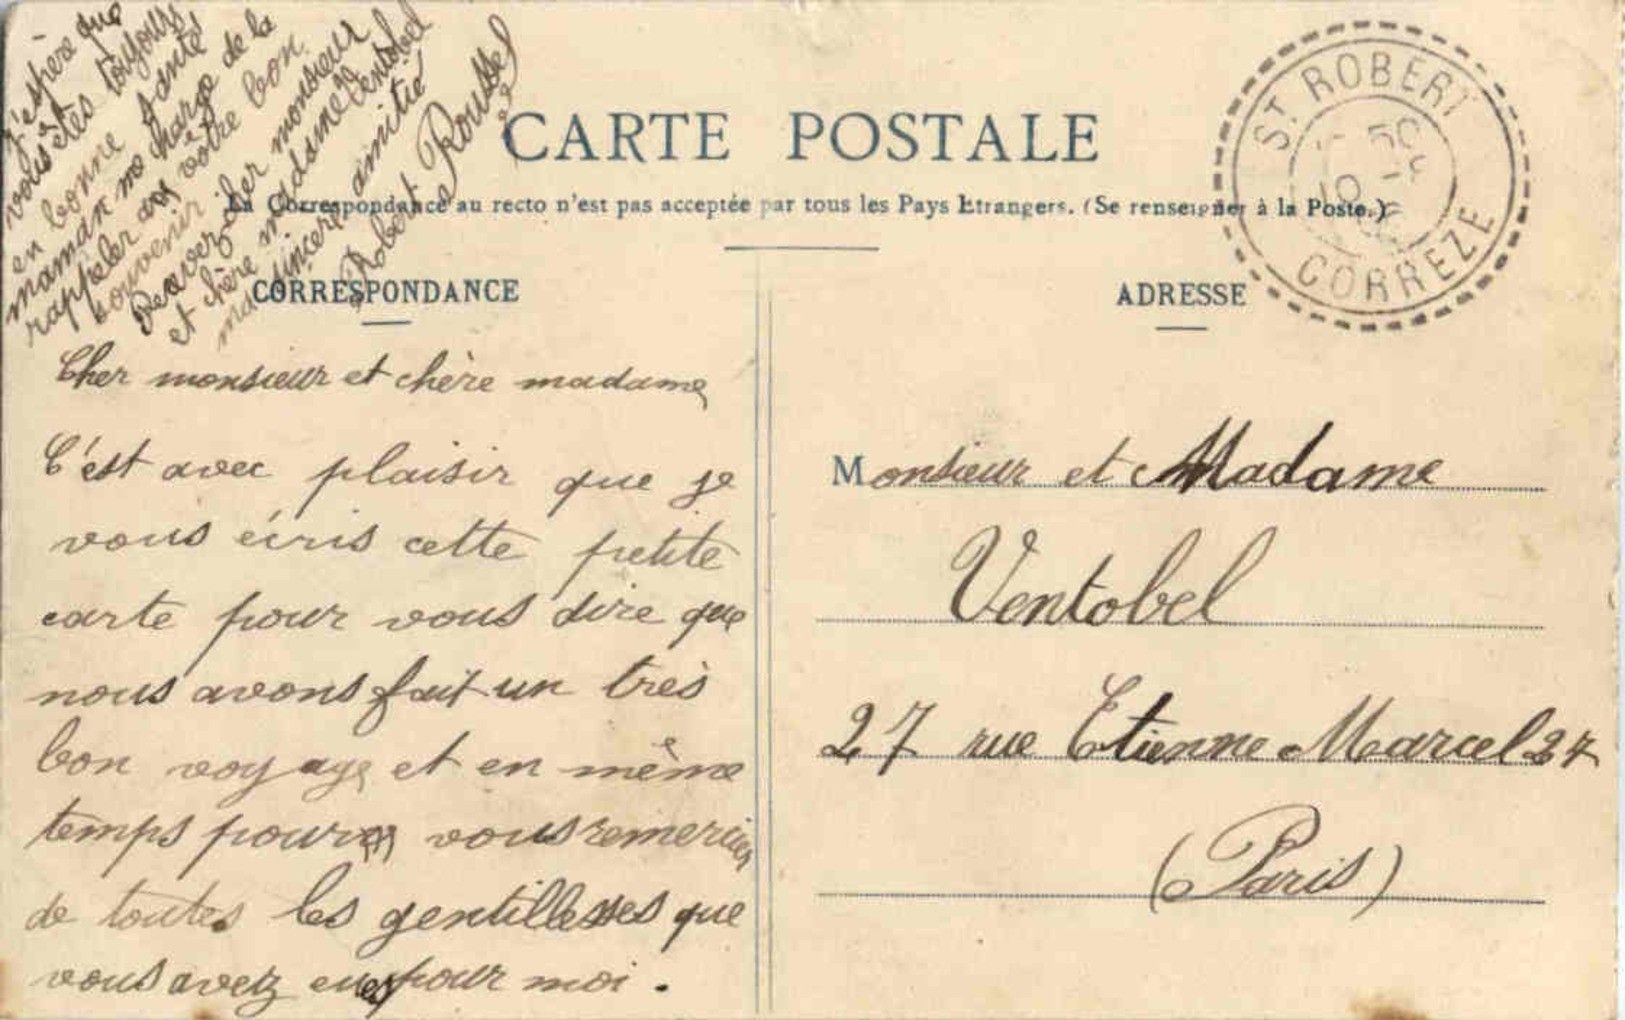 CARTE POSTALE
La Correspondance au recto n'est pas acceptée par tous les Pays Etrangers. (Se renseigner à la Poste.)
CORRESPONDANCE
Cher monsieur et chère madame
C'est avec plaisir que je
vous écris cette petite
carte pour vous dire que
nous avons fait un très
bon voyage et en même
temps pour vous remercier
de toutes les gentillesses que
vous avez eues pour moi.
J'espère que
vous êtes toujours
en bonne santé
maman me charge de la
rappeler à votre bon
souvenir
Recevez cher monsieur
et chère madame Ventobel
ma sincère amitié
Robert Roussel
ADRESSE
Monsieur et Madame
Ventobel
27 rue Etienne Marcel 27
(Paris)
ST ROBERT
CORREZE